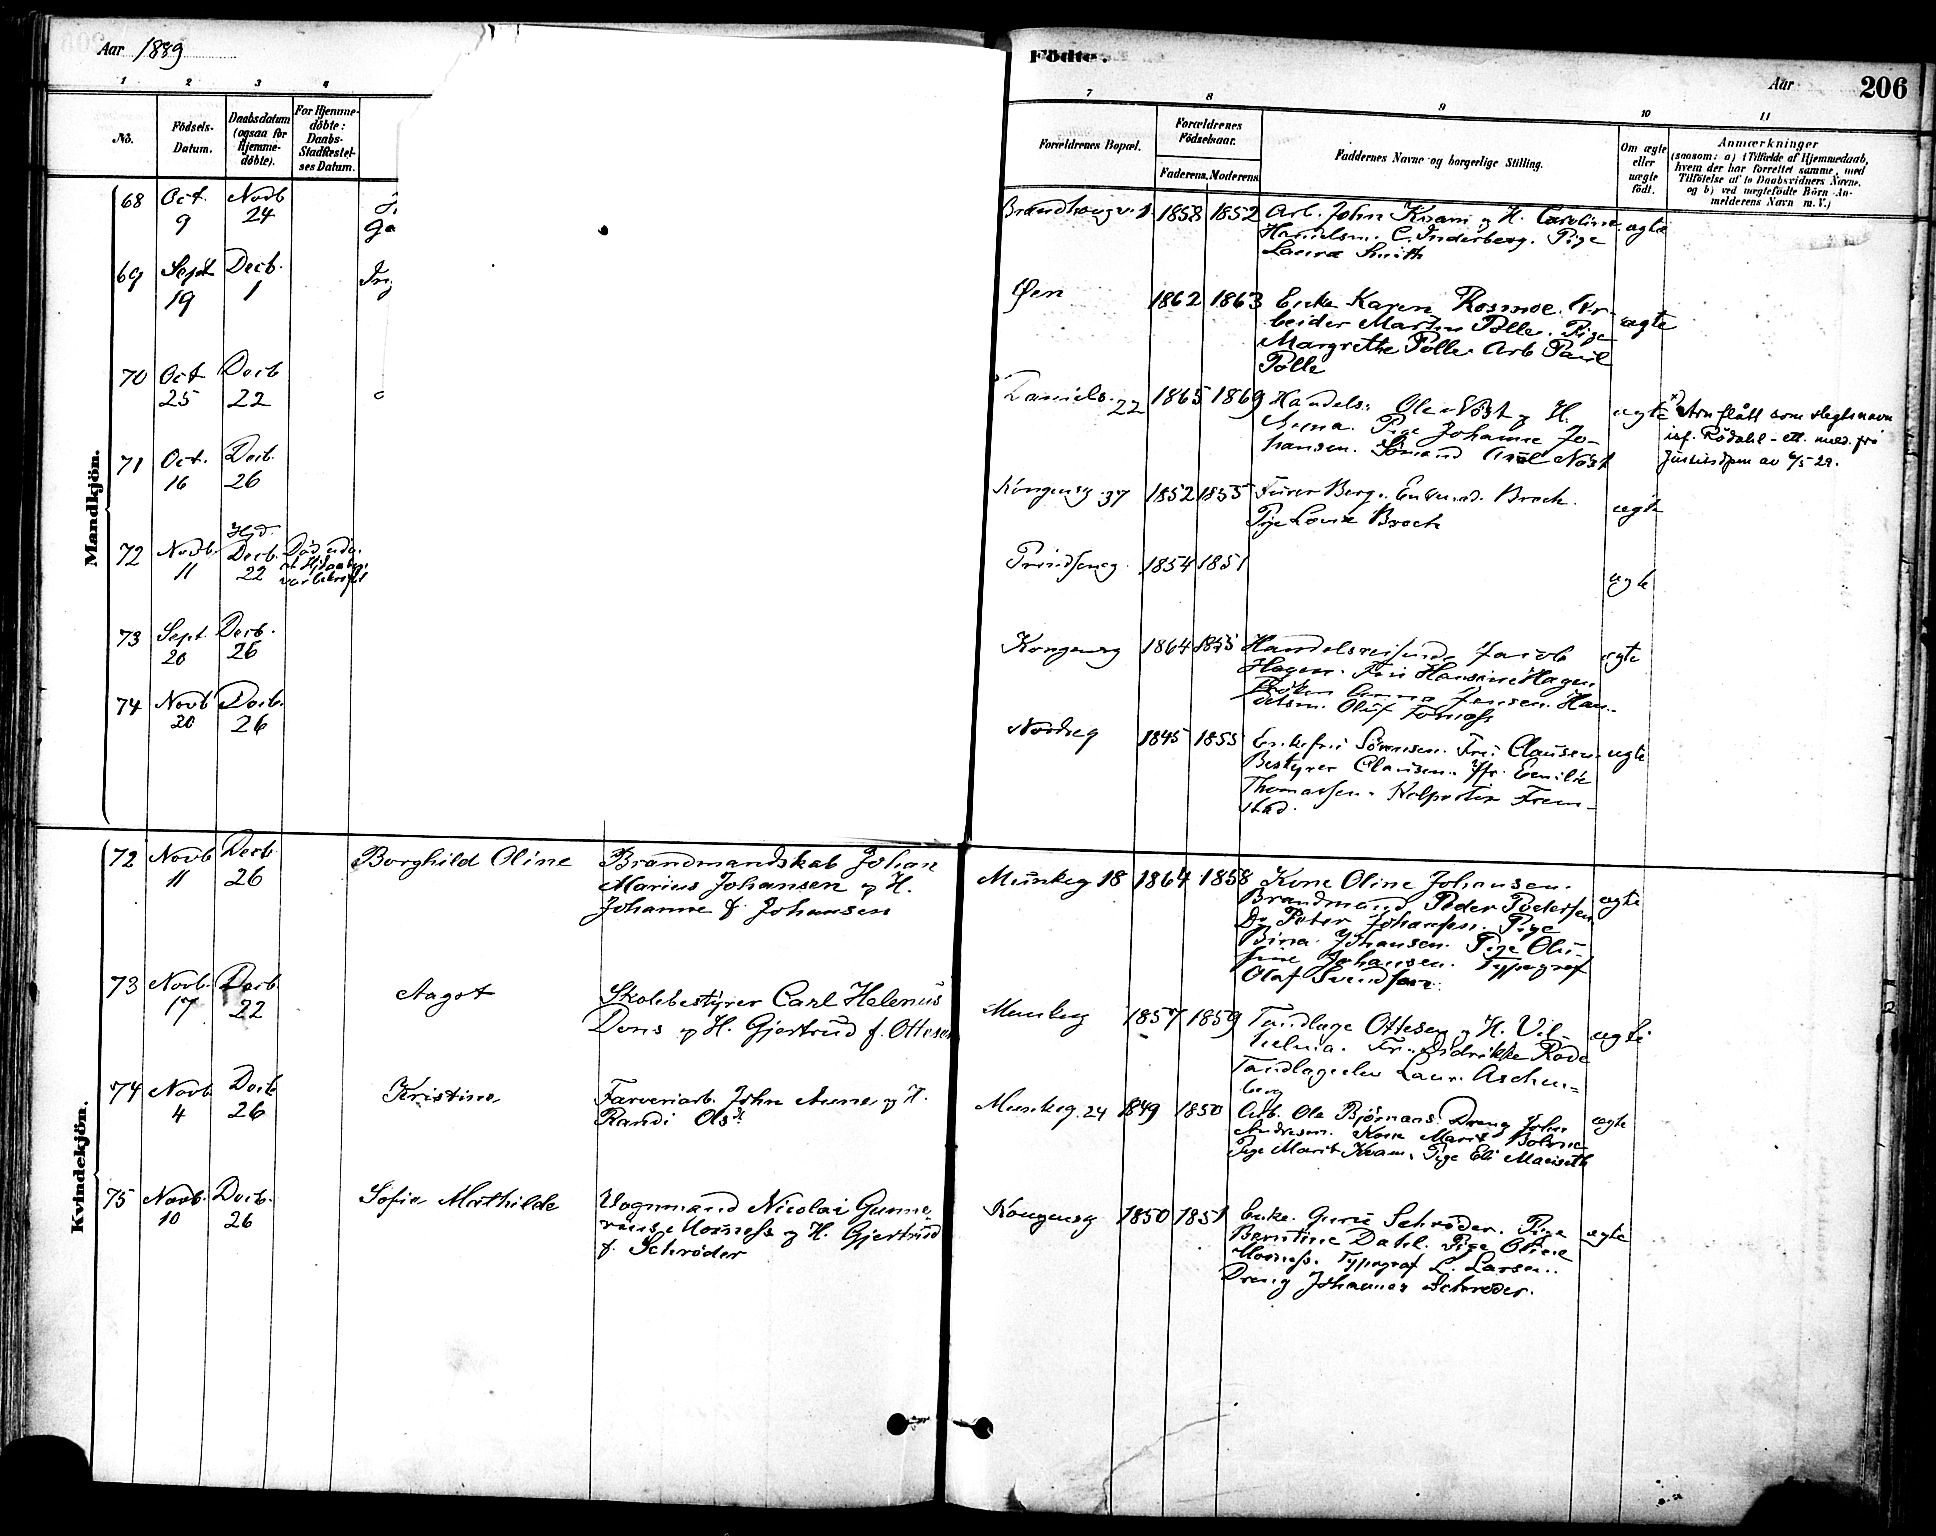 Aar 1889
Födte.
Aar
206
1 2 3 4
7 8 9 10 11
No.
Födsels-
Datum.
Daabsdatum
(ogsaa for
Hjemme-
döbte).
For Hjemme-
döbte:
Daabs-
Stadfæstel-
ses Datum.
Forældrenes Bopæl.
Forældrenes
Födselsaar.
Faderens. Moderens.
Faddernes Navne og borgerlige Stilling.
Om ægte
eller
uægte
födt.
Anmærkninger
(saasom: a) i Tilfælde af Hjemmedaab,
hvem der har forrettet samme, med
Tilföielse af to Daabsvidners Navne,
og b) ved uægtefödte Börn An-
melderens Navn m. V.)
Mandkjön.
68 Oct. 9 Novb 24
1858 1852 Arb. John Kvam og H. Caroline
Handelsm. C. Inderberg. Pige
Laura Smith
ægte
69 Sept 19 Decb. 1
Øen 1862 1863 Enke Karen Rosmoe. Ar-
beider Martin Polle. Pige
Margrethe Polle. Arb Paul
Polle
ægte
70 Oct 25 Decb 22
Daniels. 22 1865 1869 Handels. Ole Nøst og H.
Anna. Pige Johanne Jo-
hansen. Sömand Nøst
ægte
som slegtsnavn
71 Oct. 16 Decb. 26
Kongensg 37 1852 1855 Berg. Brock.
Pige Brock
ægte
72 Novb. 11 Hjd. Decb. 22
Prindsensg. 1854 1851
ægte
73 Sept. 20 Decb. 26
Kongensg 1864 Handelsreisende Jacob
Hagen. Fru Hansine Hagen.
Fröken Anna Jensen. Han-
delsm. Oluf
ægte
74 Novb 20 Decb. 26
Nordreg 1845 1855 Enkefru Sörensen. Fru Clausen.
Bestyrer Clausen. Jfr. Emilie
Thomassen. Kolportör Frem-
stad.
ægte
Kvindekjön.
72 Novb 11 Decb 26
Borghild Oline
Brandmandskab Johan
Marius Johansen og H.
Johanne f. Johansen
Munkeg 18 1864 1858 Kone Oline Johansen.
Brandmand Peder Pedersen
Do Peter Johansen. Pige
Bina Johansen. Pige Oli-
sine Johansen. Typograf
Olaf Svendsen.
ægte
73 Novb. 17 Decb 22
Aagot
Skolebestyrer Carl Helenus
Dons og H. Gjertrud f. Ottesen
Munkeg 1857 1859 Tandlæge Ottesen og H. Vil-
helmia. Fru Didrikke Rode
Tandlægeelev Laur. Aschen-
berg
ægte
74 Novb. 4 Decb 26
Kristine
Farveriarb. John Aune og H.
Randi Osᵗ
Munkeg. 24 1849 1850 Arb. Ole Björnaas. Dreng John
Andresen. Kone Marit
Pige Marit Kvam. Pige Eli
ægte
75 Novb. 10 Decb. 26
Sofie Mathilde
Vognmand Nicolai Gunne-
rius Morness og H. Gjertrud
f. Schröder
Kongensg 1850 1851 Enke. Guru Schröder. Pige
Berntine Dahl. Pige
Morness. Typograf L. Larsen.
Dreng Johannes Schröder.
ægte